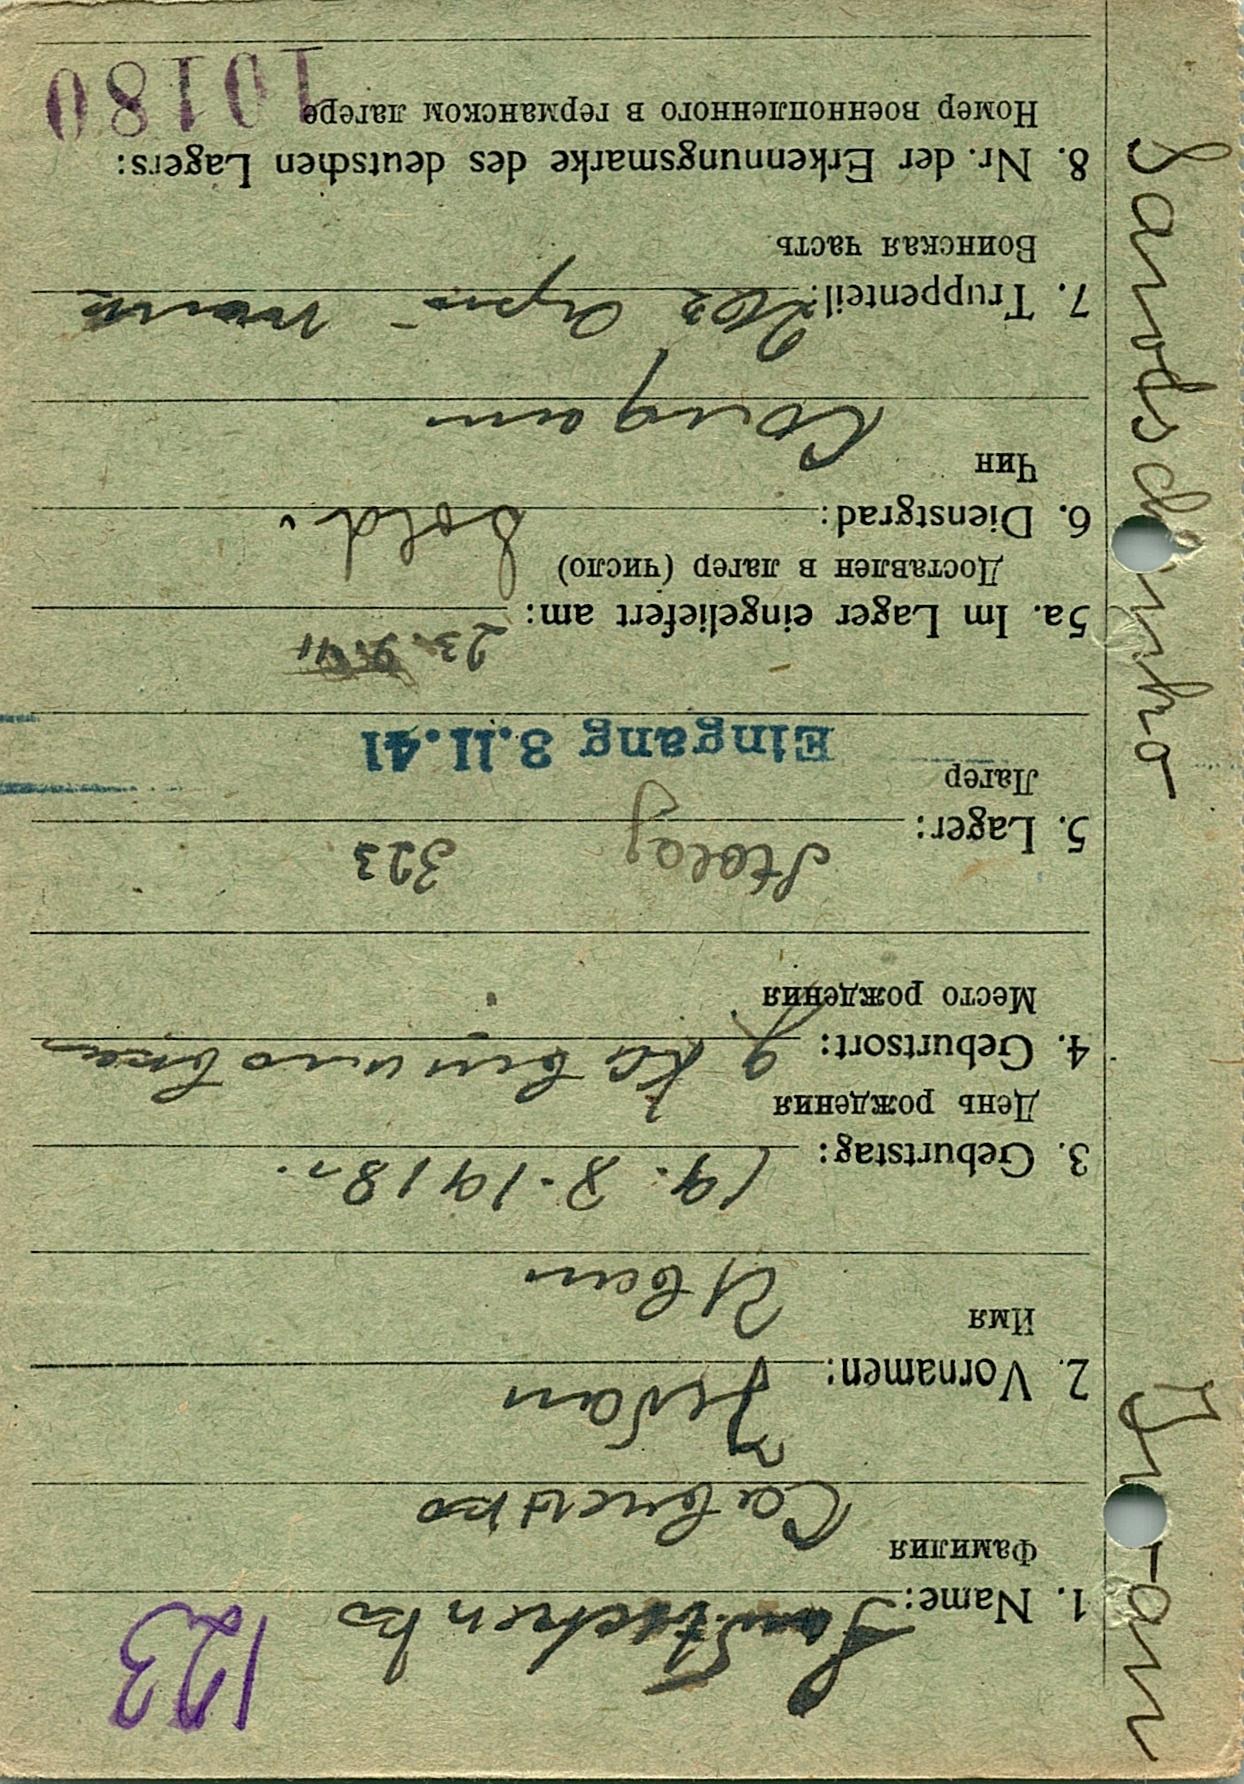 123
1. Name:
Фамилия
Савченко
2. Vornamen: Iwan
Имя
Иван
3. Geburtstag: 19. 8. 1918 г.
День рождения
4. Geburtsort:
Место рождения
5. Lager: Stalag 323
Лагер
Eingang 3.11.41
5a. Im Lager eingeliefert am: 23. 9. 41
Доставлен в лагер (число)
6. Dienstgrad: Sold.
Чин
7. Truppenteil:
Воинская часть
8. Nr. der Erkennungsmarke des deutschen Lagers:
Номер военнопленного в германском лагере
10180
Iwan